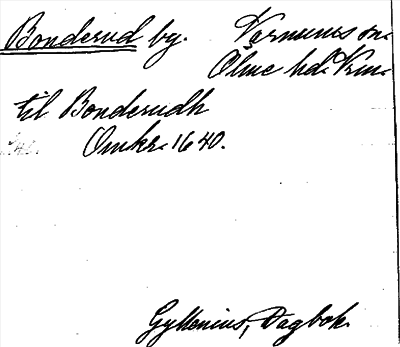 Bonderud by. Varnums sn.
Ölme hd. Vrml.
til Bonderudh
Omkr. 1640.
Gyllenius, Dagbok.